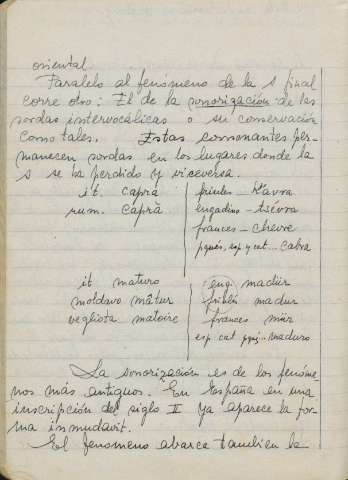 oriental
Paralelo al fenómeno de la s final
corre otro: El de la sonorización de las
sordas intervocálicas o su conservación
como tales. Estas consonantes per-
manecen sordas en los lugares donde la
s se ha perdido y viceversa.
it. capra
rum. capră
friules - kavra
engadino - tsévra
frances - chevre
pgués, esp y cat... cabra
it maturo
moldavo mâtur
vegliota matoire
eng. madür
friulés madur
frances mûr
esp cat pgués - maduro
La sonorización es de los fenóme-
nos más antiguos. En España en una
inscripción del siglo II ya aparece la for-
ma inmudavit.
El fenomeno abarca tambien la